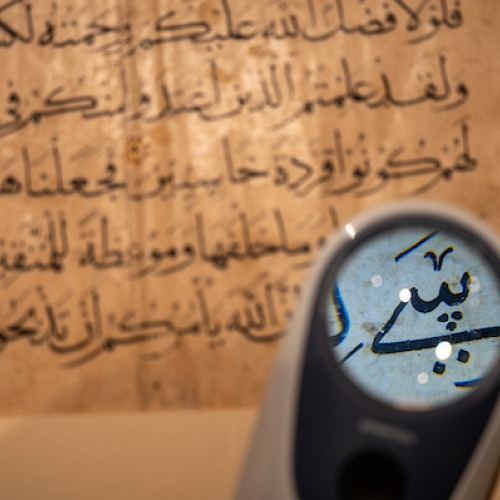 فلولا فضل الله عليكم ورحمته
ولقد علمتم الذين اعتدوا منكم في
لهم كونوا قردة خاسئين فجعلناها
وما خلفها وموعظة للمتقين
الله يأمركم أن تذبحوا